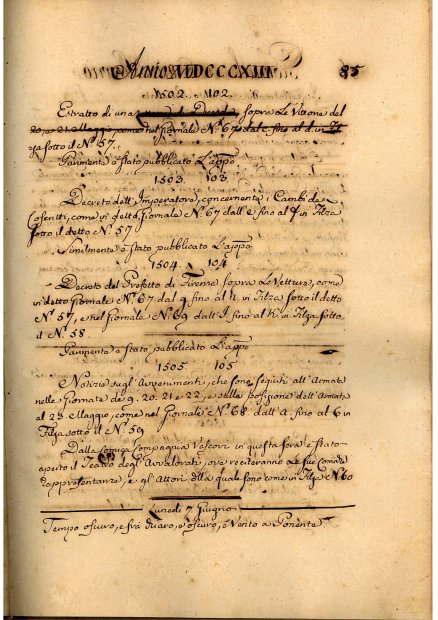 Anno MDCCCXIII 85
1502. 102.
Estratto di una sopra Le Vittorie del
20, e 21. Maggio, come nel Giornale N.º 67. dal c. fino al d. in Filza sotto il N.º 57.
Parimente è stato pubblicato L'appo
1503 103
Decreto dell'Imperatore, concernente i Cambi de
Coscritti, come in detto Giornale N.º 67 dall'e fino al f in Filza
sotto il detto N.º 57
Similmente è stato pubblicato L'appo
1504. 104
Decreto del Prefetto di Firenze sopra Le Vetture, come
in detto Giornale N.º 67 dal g. fino al h. in Filza sotto il detto
N.º 57, e nel Giornale N.º 69 dall'I. fino al K. in Filza sotto
il N.º 58
Parimente è stato pubblicato L'appo
1505. 105
Notizie sugl'Avvenimenti, che sono seguiti all'Armata
nelle Giornate de 9. 20. 21 e 22, e sulla posizione dell'Armata
al 23. Maggio, come nel Giornale N.º 68. dall'A. fino al b in
Filza sotto il N.º 59
Dalla Comica Compagnia Vestri in questa sera è stato
aperto il Teatro degl'Avvalorati, ove reciteranno Le sue Comiche
rappresentanze, e gl'Attori della quale sono come in Filza N.º 60
Lunedì 7 Giugno
Tempo oscuro, e fra chiaro, e oscuro, e Vento a Ponente